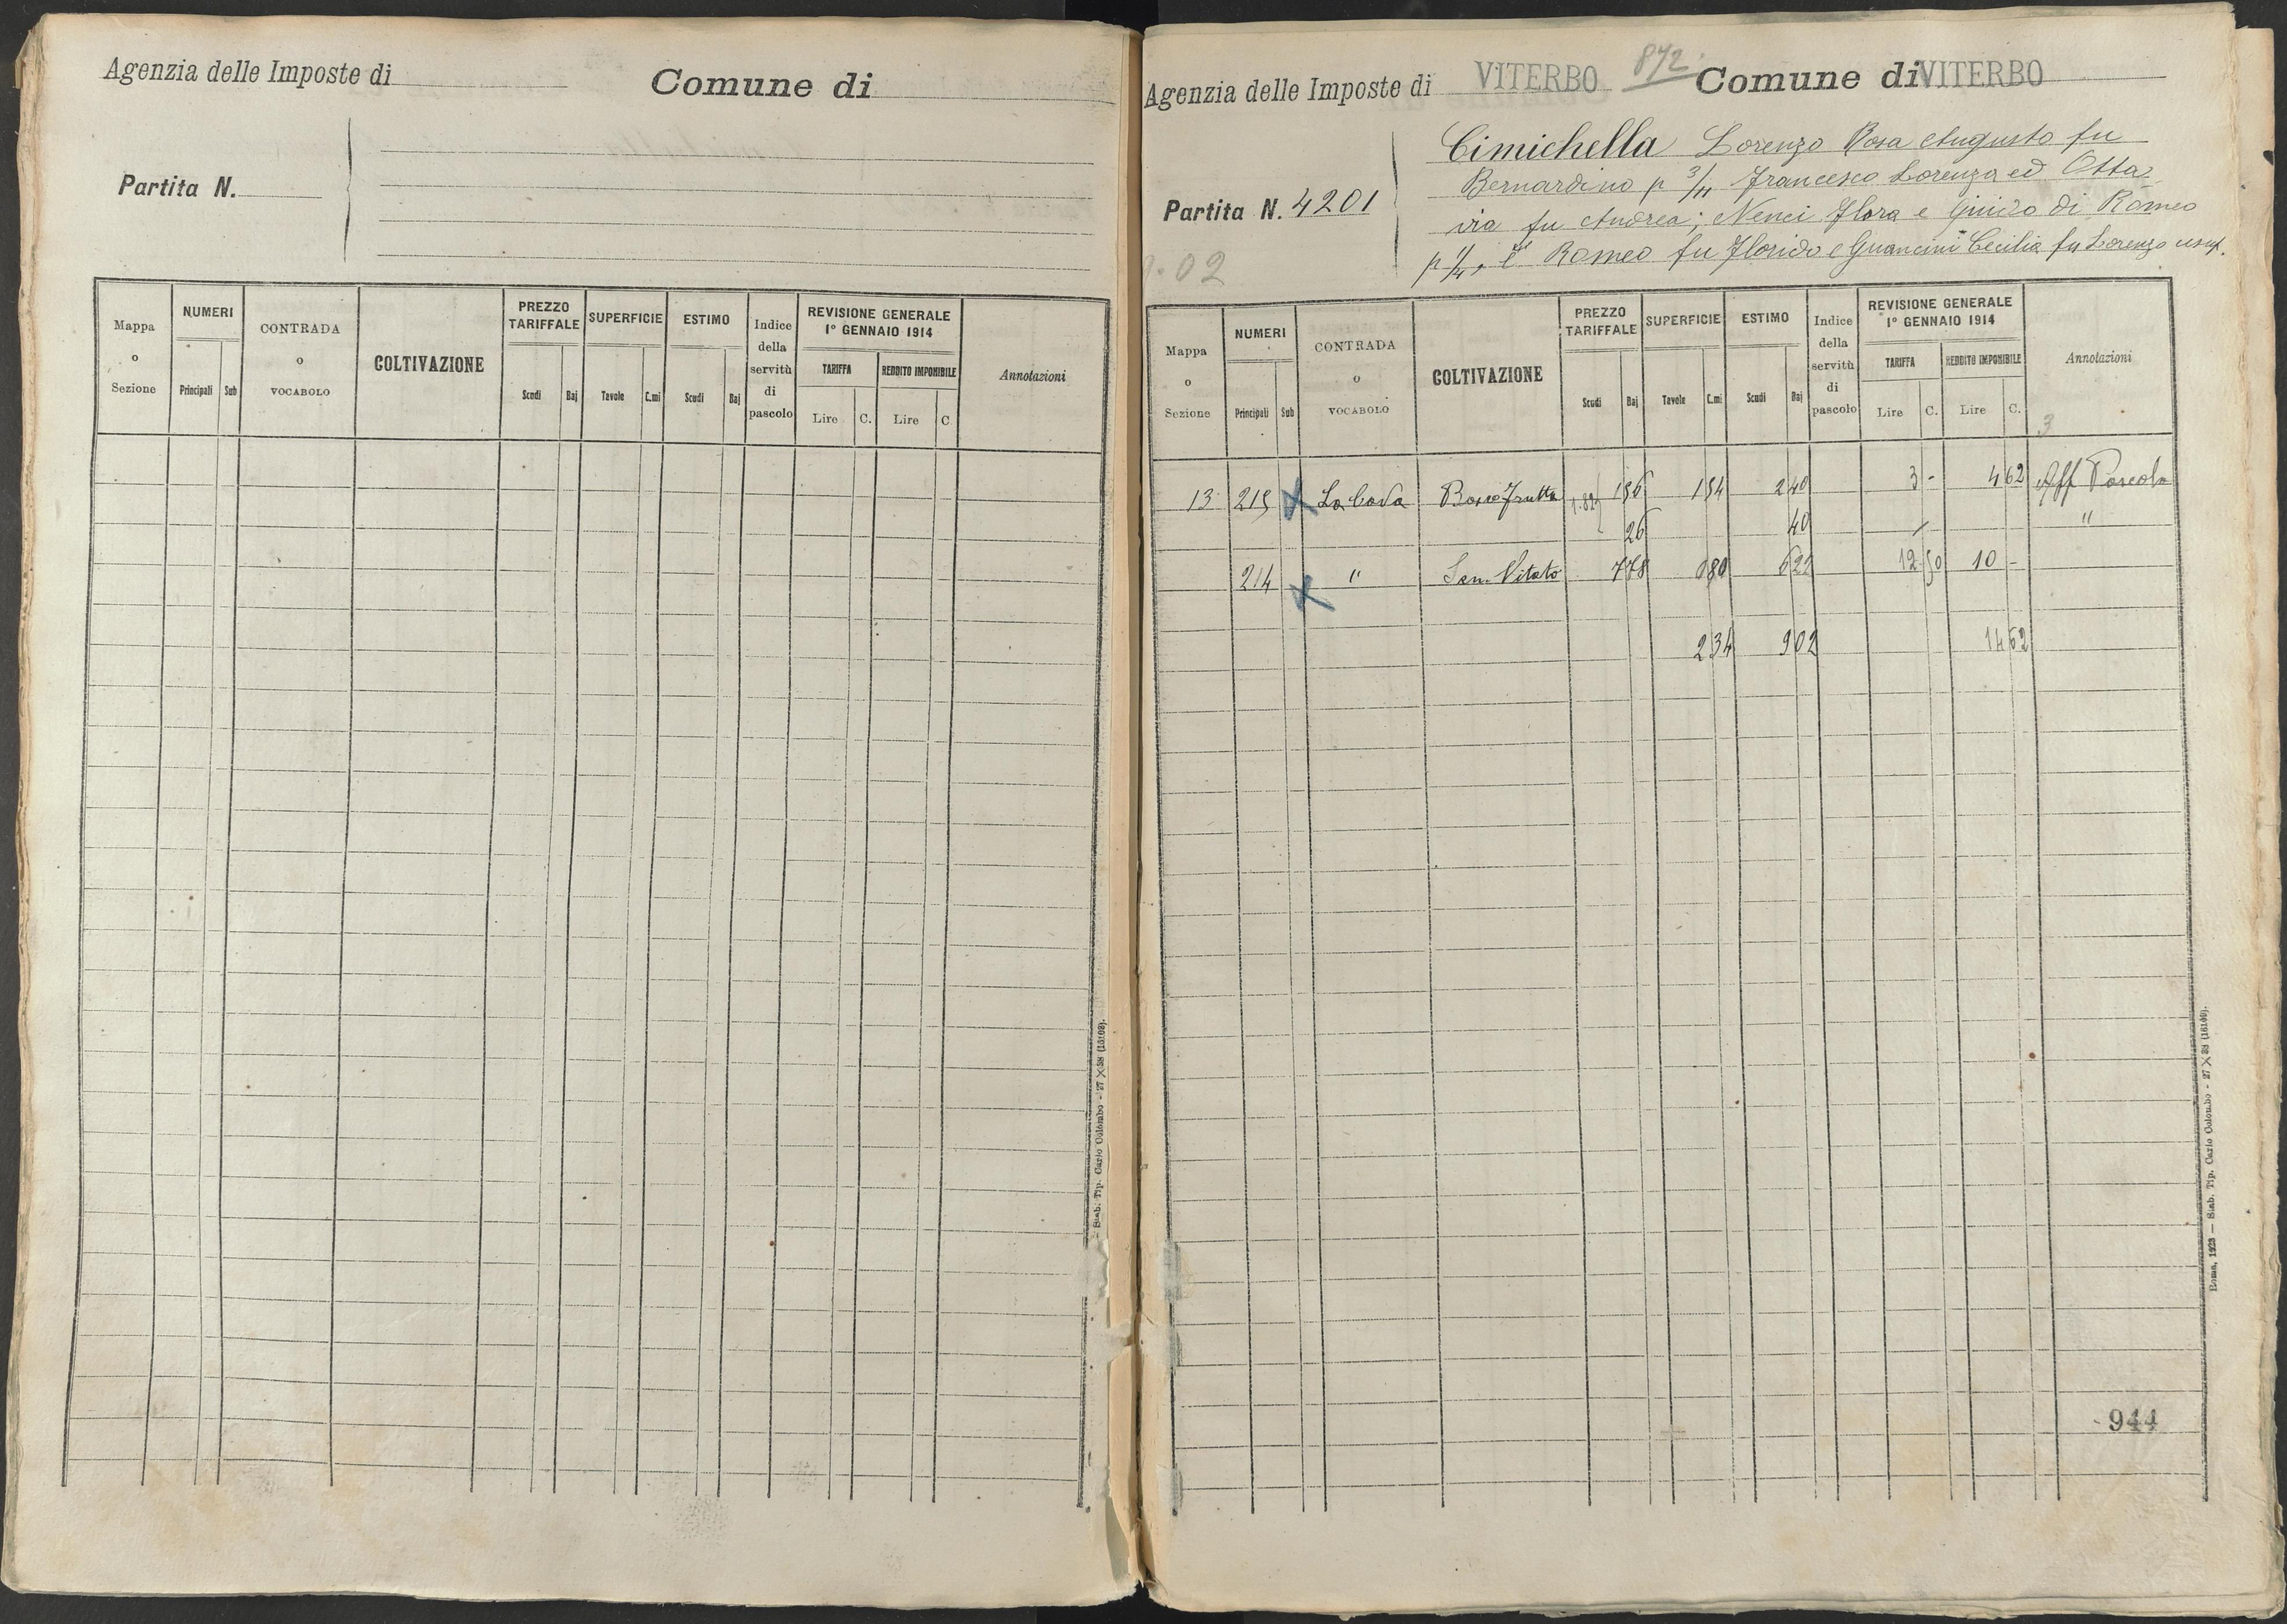 Agenzia delle Imposte di Comune di
Partita N.
Mappa o Sezione NUMERI Principali Sub CONTRADA o VOCABOLO COLTIVAZIONE PREZZO TARIFFALE Scudi Baj SUPERFICIE Tavole C.mi ESTIMO Scudi Baj Indice della servitù di pascolo REVISIONE GENERALE 1° GENNAIO 1914 TARIFFA Lire C. REDDITO IMPONIBILE Lire C Annotazioni
Stab. Tip. Carlo Colombo - 27 × 38
Agenzia delle Imposte di VITERBO 872. Comune di VITERBO
Cimichella Lorenzo Rosa Augusto fu
Bernardino p 3/11 Francesco Lorenza ed Otta-
Partita N. 4201
via fu Andrea; Nenci Flora e Guido di Romeo
Romeo fu Florido e Guancini Cecilia fu Lorenzo usuf.
02
Mappa o Sezione NUMERI Principali Sub CONTRADA o VOCABOLO COLTIVAZIONE PREZZO TARIFFALE Scudi Baj SUPERFICIE Tavole C.mi ESTIMO Scudi Baj Indice della servitù di pascolo REVISIONE GENERALE 1° GENNAIO 1914 TARIFFA Lire C. REDDITO IMPONIBILE Lire C. Annotazioni
3
13 215 X La Cava Bosco Frutta 1.82 156 154 240 3 - 4 62 Aff Pascolo
26 40 "
214 X " Sem. Vitato 778 080 622 12 50 10 -
2 34 9 02 14 62
Roma, 1923 — Stab. Tip. Carlo Colombo - 27 × 38 (16100).
944